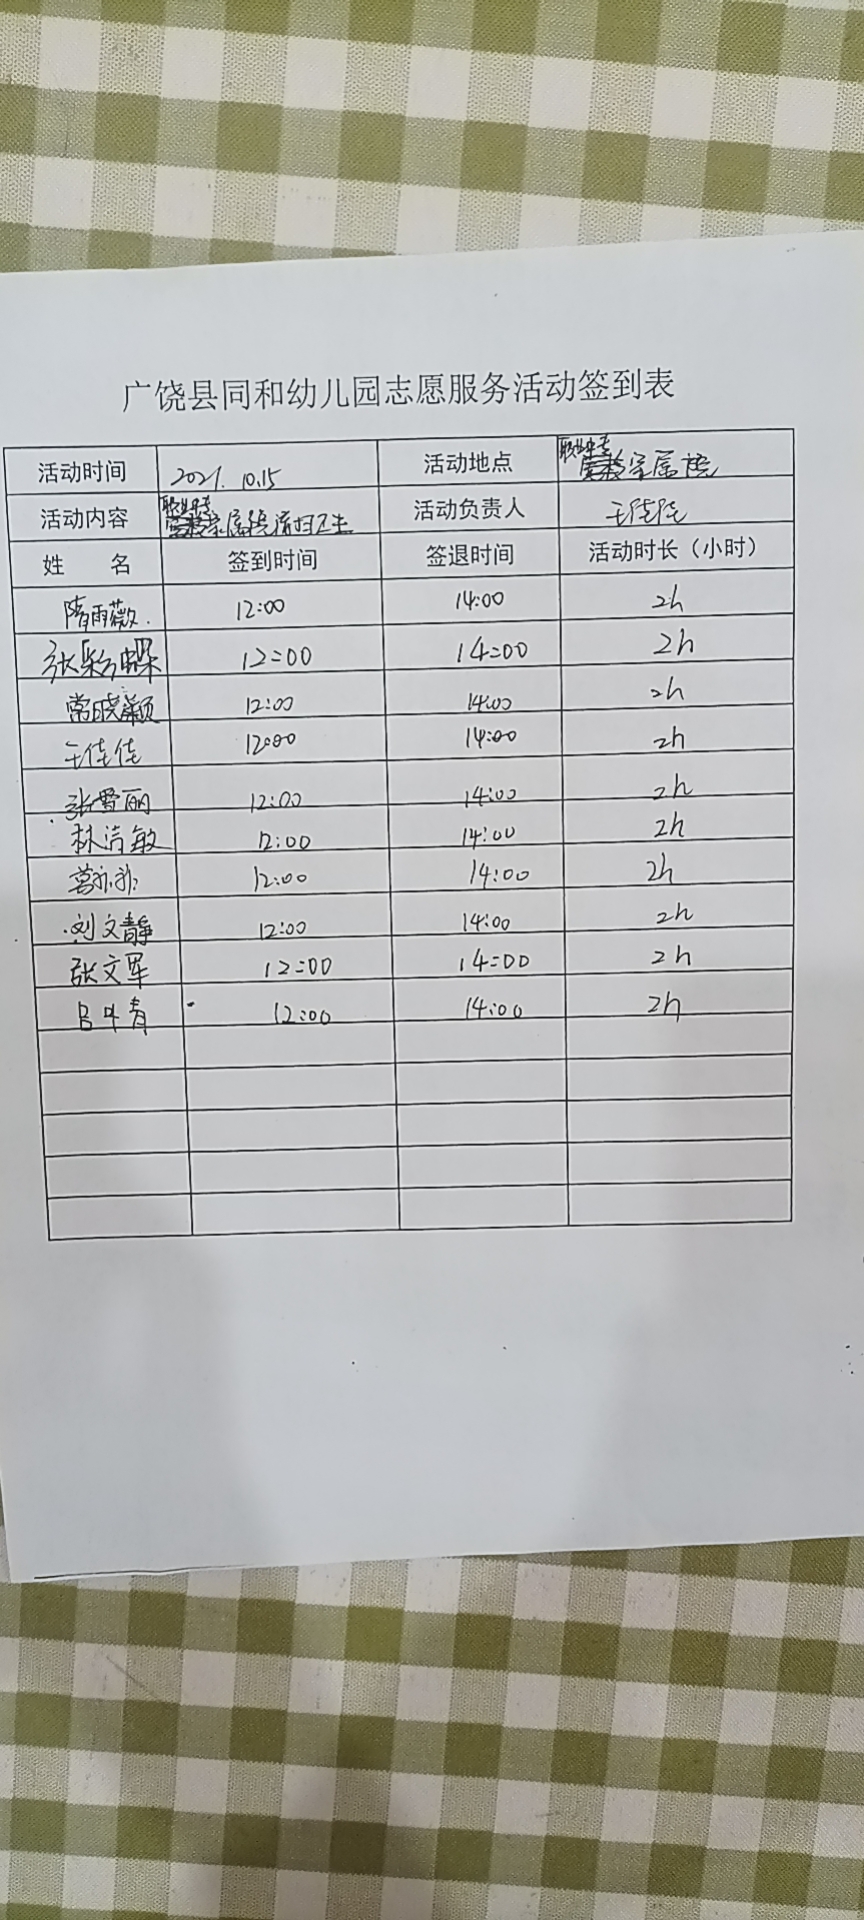 广饶县同和幼儿园志愿服务活动签到表
活动时间 2021.10.15 活动地点 职业中专家属院
活动内容 职业中专家属院清扫卫生 活动负责人 王佳佳
姓 名 签到时间 签退时间 活动时长（小时）
隋雨薇 12:00 14:00 2h
张彩蝶 12:00 14:00 2h
常晓颖 12:00 14:00 2h
王佳佳 12:00 14:00 2h
张雪丽 12:00 14:00 2h
林清敏 12:00 14:00 2h
葛 12:00 14:00 2h
刘文静 12:00 14:00 2h
张文军 12:00 14:00 2h
吕叶青 12:00 14:00 2h